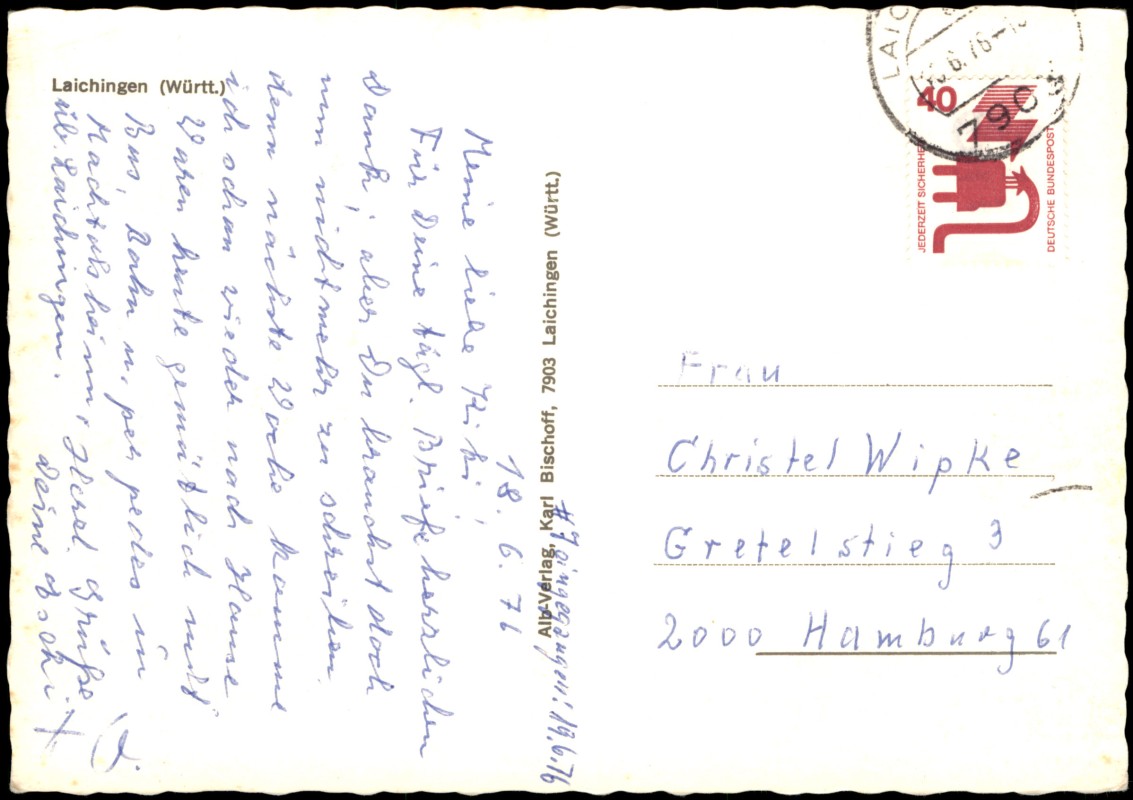 Laichingen (Württ.)
18. 6. 76
Meine liebe Kiki,
Für Deine tägl. Briefe herzlichen
Dank, aber Du brauchst doch
nun nicht mehr zu schreiben
denn nächste Woche komme
ich schon wieder nach Hause
Waren heute gemütlich mit
Bus, Bahn u. per pedes in
Machtolsheim,
üb. Laichingen.
Herzl. Grüße
Deine
Alb-Verlag, Karl Bischoff, 7903 Laichingen (Württ.)
eingegangen: 19.6.76
LAIC
6.76-1
790
40
JEDERZEIT SICHERHE
DEUTSCHE BUNDESPOST
Frau
Christel Wipke
Gretelstieg 3
2000 Hamburg 61